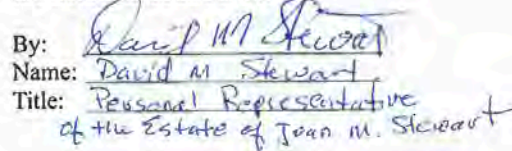 By: David M Stewart
Name: David M Stewart
Title: Personal Representative
of the Estate of Joan M. Stewart